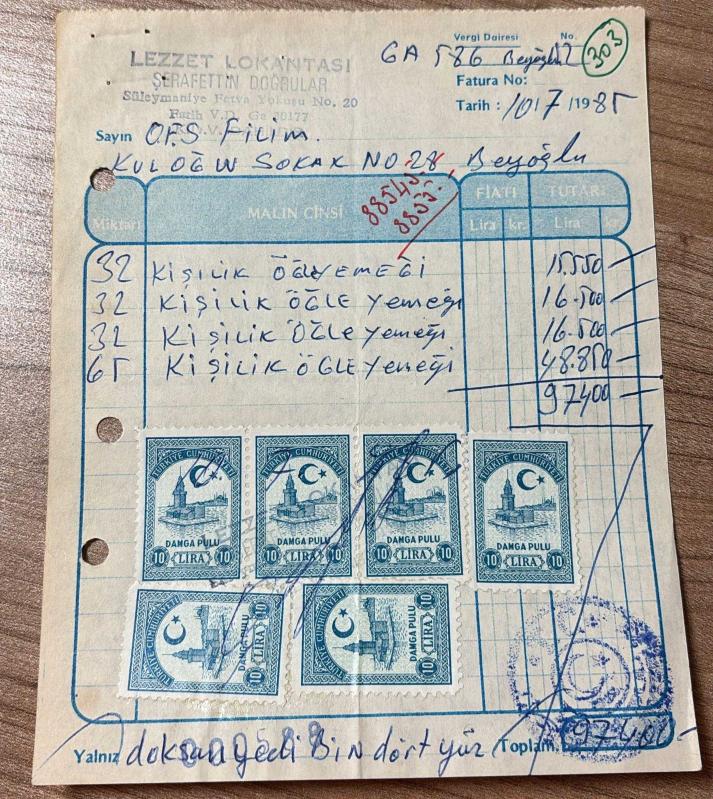 Vergi Dairesi No.
GA 586 Beyoğlu
303
LEZZET LOKANTASI
ŞERAFETTİN DOĞRULAR
Süleymaniye Fetva Yokuşu No. 20
Fatih V.D. Ga 30177
Fatura No:
Tarih : 10/7/1985
Sayın OFS FİLİM.
KULOĞLU SOKAK NO 28, Beyoğlu
88545.
8855.
Miktarı MALIN CİNSİ FİATI TUTARI
Lira kr. Lira kr.
32 KİŞİLİK ÖĞLE YEMEĞİ 15.550
32 KİŞİLİK ÖĞLE Yemeği 16.500
32 KİŞİLİK ÖĞLE Yemeği 16.500
65 KİŞİLİK ÖĞLE Yemeği 48.850
97400
TÜRKİYE CUMHURİYETİ TÜRKİYE CUMHURİYETİ TÜRKİYE CUMHURİYETİ TÜRKİYE CUMHURİYETİ
DAMGA PULU DAMGA PULU DAMGA PULU DAMGA PULU
10 LİRA 10 10 LİRA 10 10 LİRA 10 10 LİRA 10
TÜRKİYE CUMHURİYETİ TÜRKİYE CUMHURİYETİ
DAMGA PULU DAMGA PULU
10 LİRA 10 10 LİRA 10
Yalnız doksanyedi Bin dört yüz Toplam 97400